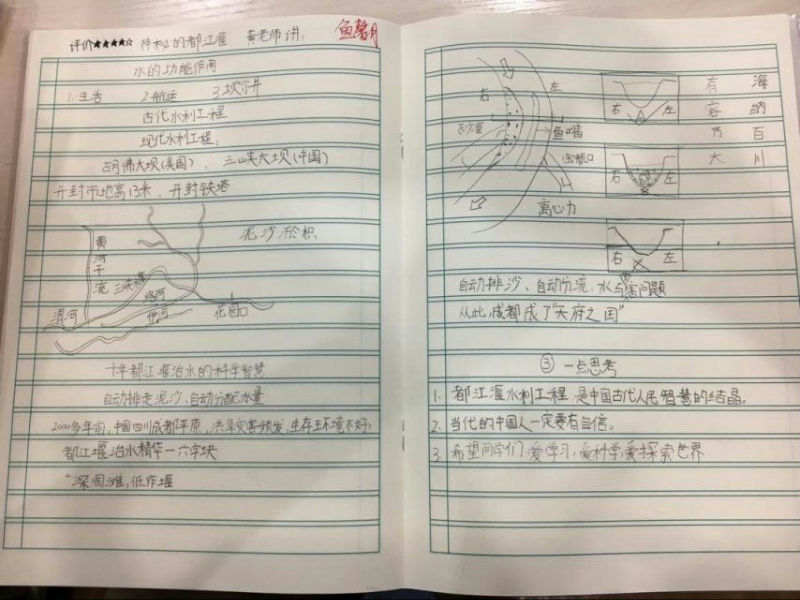 评价★★★★☆ 神秘的都江堰 黄老师讲,
鱼馨月
水的功能作用
1.生活 2.航运 3.坎尔井
古代水利工程
现代水利工程:
古月佛大坝(美国)、三峡大坝(中国)
开封市地高13米、开封铁塔
泥沙淤积
黄河干流
三峡
洛河
渭河
伊河
花园口
千年都江堰治水的科学智慧
自动排走泥沙、自动分配水量
2000多年前,中国四川成都平原,洪旱灾害频发,生存环境不好
都江堰治水精华一六字块
"深淘滩,低作堰
右
左
鱼嘴
宝瓶口
离心力
右 左
右 左
右 左
有容乃大
海纳百川
自动排沙、自动分流,水与害问题
从此,成都成了"天府之国"
③ 一点思考
1. 都江堰水利工程,是中国古代人民智慧的结晶。
2. 当代的中国人一定要有自信。
3. 希望同学们,爱学习,爱科学,爱探索世界